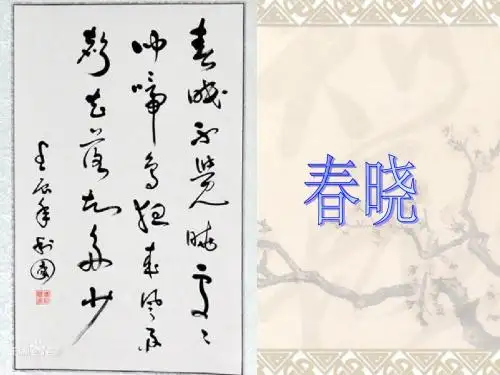 春眠不觉晓处々
闻啼鸟夜来风雨
声花落知多少
壬辰年
春晓